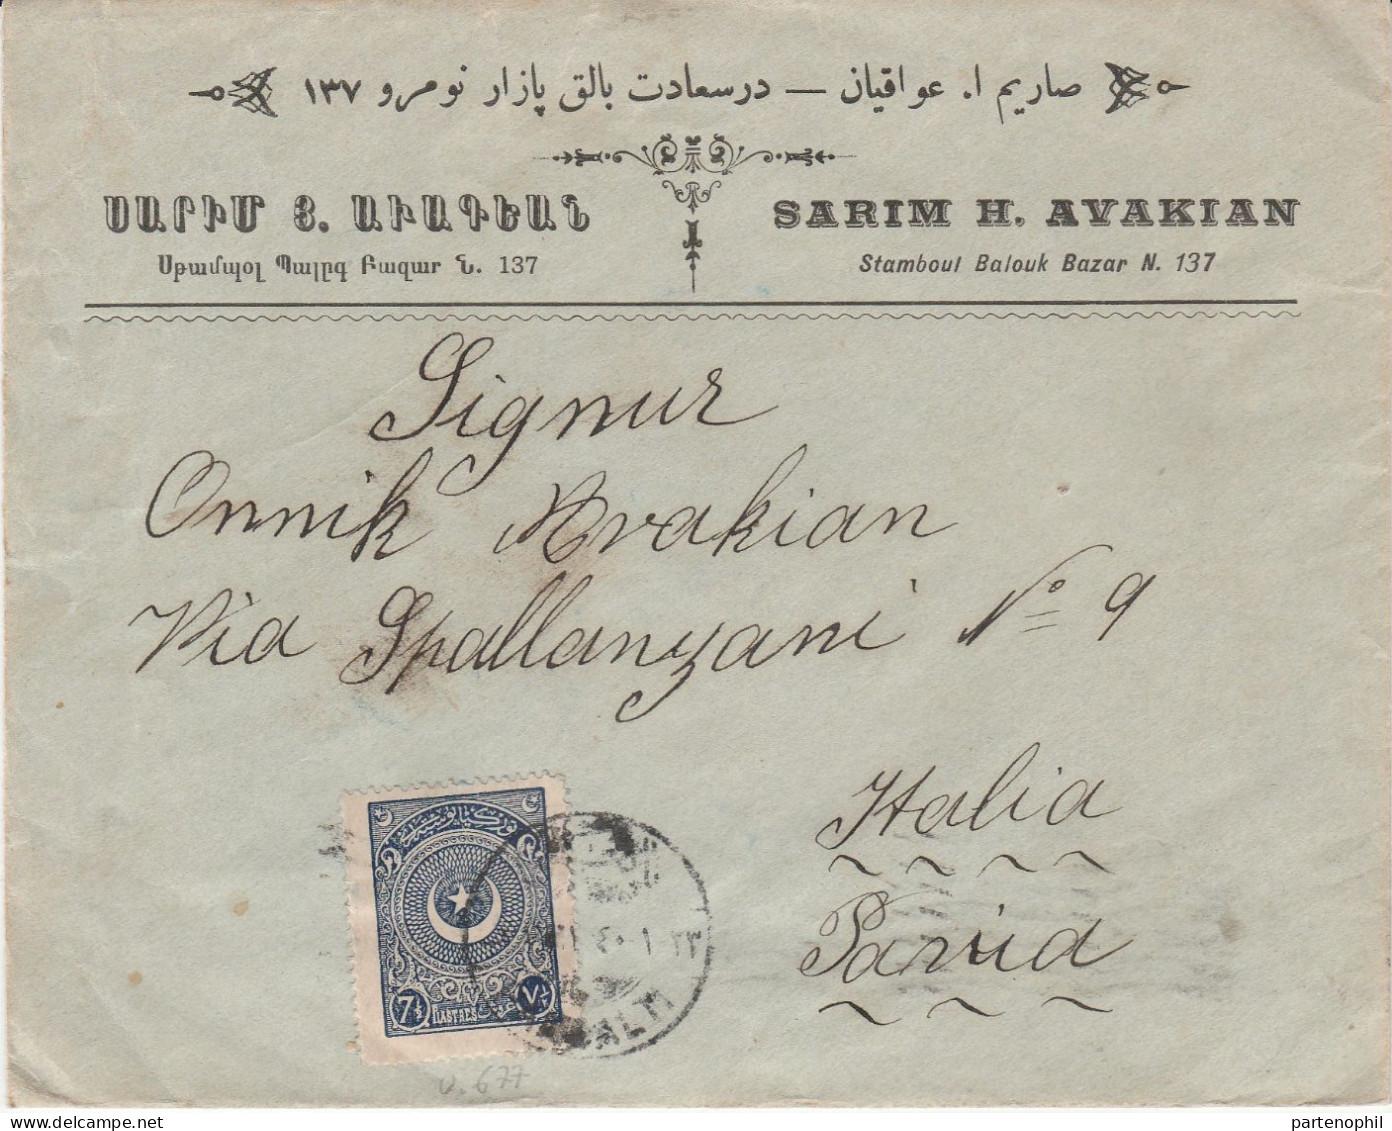 صاریم ا. عواقیان — درسعادت بالق پازار نومرو ١٣٧
ՍԱՐԻՄ Յ. ԱՒԱԳԵԱՆ
Սթամպօլ Պալըգ Բազար Ն. 137
SARIM H. AVAKIAN
Stamboul Balouk Bazar N. 137
Signur
Onnik Avakian
Via Spallanzani No 9
Italia
Pavia
7½
PIASTRES
غروش
٧½
v. 677
partenophil